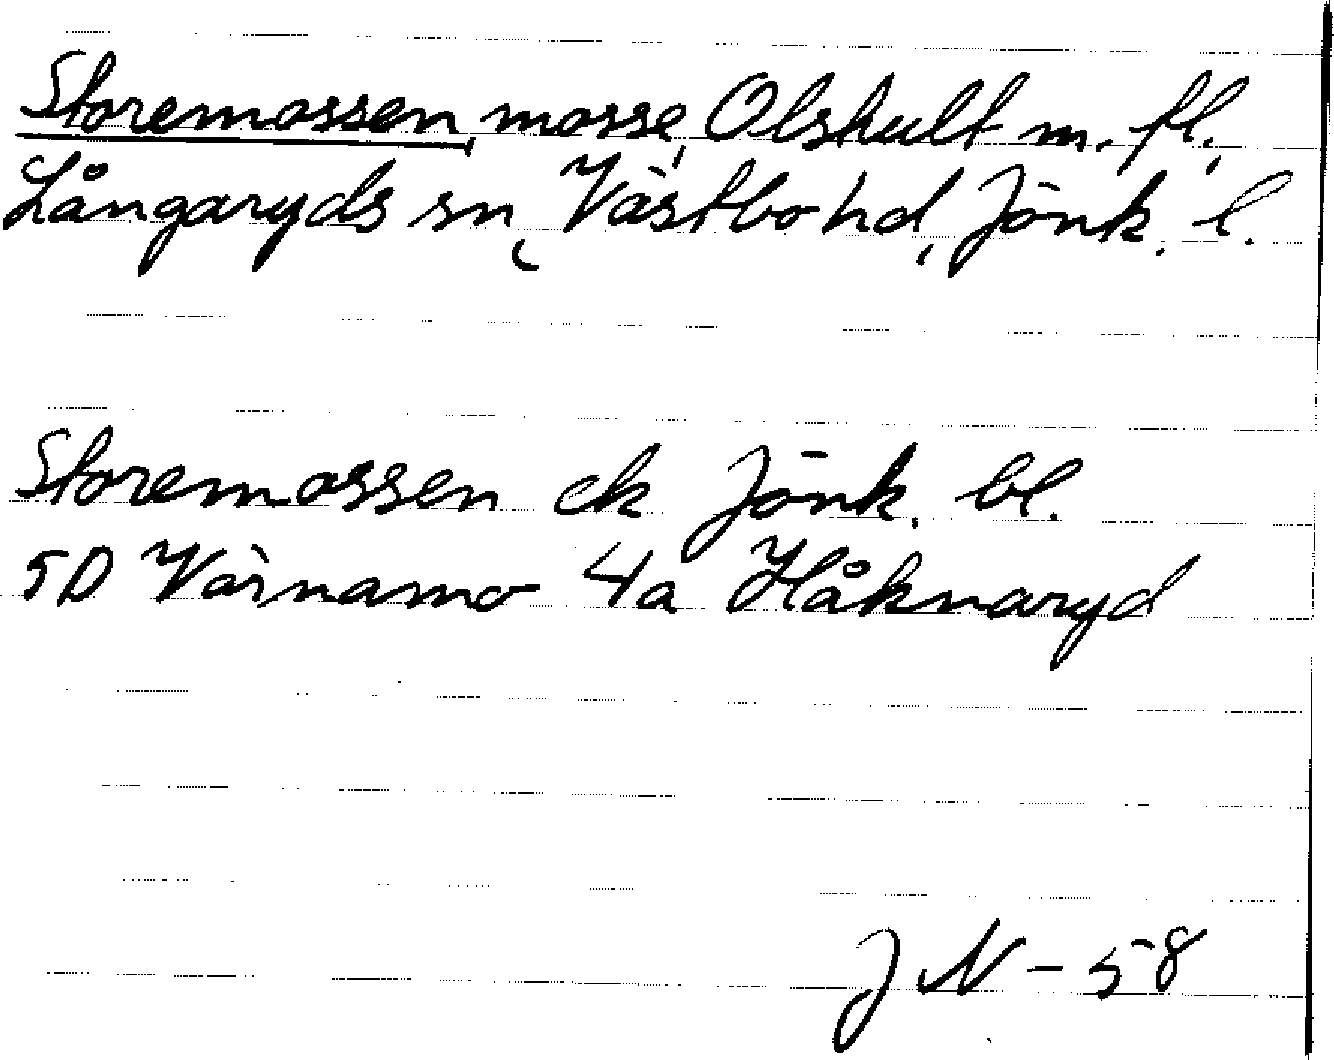 Storemossen, mosse, Olshult m. fl.,
Långaryds sn, Västbo hd, Jönk. l.
Storemossen ek Jönk. bl.
5D Värnamo 4a Håknaryd
JN - 58